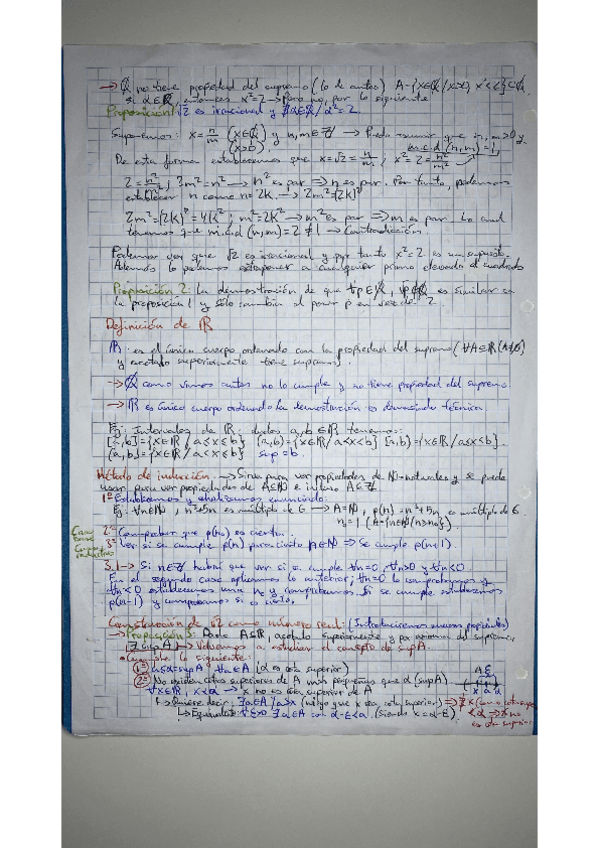 → Q no tiene propiedad del supremo (lo de antes) A={x∈Q / x>0, x²<2}⊂Q
si α∈Q, entonces x²=2 → Pero no, por lo siguiente
Proposición 1: √2 es irracional y ∄α∈Q / α²=2.
Suponemos: x=n/m (x∈Q) y n,m∈Z → Puedo asumir que n,m>0 y
(x>0). m.c.d (n,m)=1
De esta forma establecemos que x=√2=n/m; x²=2=n²/m²
2=n²/m²; 2m²=n² → n² es par ⇒ n es par. Por tanto, podemos
establecer n como n=2k. → 2m²=(2k)²
2m²=(2k)²=4k²; m²=2k² → m² es par ⇒ m es par. Lo cual
tenemos que m.c.d (n,m)=2≠1 → Contradicción.
Podemos ver que √2 es irracional y por tanto x²=2 es un supuesto.
Además lo podemos extrapolar a cualquier primo elevado al cuadrado
Proposición 2: La demostración de que ∀p, √p∉Q es similar a
la proposición 1 y solo cambia el poner p en vez de 2.
Definición de R
R: es el único cuerpo ordenado con la propiedad del supremo (∀A⊆R (A≠∅)
y acotado superiormente tiene supremo).
→ Q como vimos antes no lo cumple y no tiene propiedad del supremo
→ R es único cuerpo ordenado la demostración es demasiado técnica
Ej: Intervalos de R: dados a,b∈R tenemos:
[a,b]={x∈R / a≤x≤b} (a,b)={x∈R / a<x<b} [a,b)={x∈R / a≤x<b}.
(a,b]={x∈R / a<x≤b} sup=b.
Método de inducción → Sirve para ver propiedades de N=naturales y se puede
usar para ver propiedades de A⊆N e incluso A⊆Z
1º Establecemos y analizamos enunciado:
Ej: ∀n∈N, n³+5n es múltiplo de 6 → A=N, p(n)=n³+5n es múltiplo de 6.
n₀=1 (A={n∈N/n≥n₀}).
Caso base 2º Comprobar que p(n₀) es cierta.
Caso inductivo 3º Ver si se cumple p(n) para cierto n∈N ⇒ Se cumple p(n+1).
3.1 → Si n∈Z habrá que ver si se cumple ∀n=0, ∀n>0 y ∀n<0
En el segundo caso aplicamos lo anterior; ∀n=0 lo comprobamos y
∀n<0 establecemos una n₀ y comprobamos. Si se cumple establecemos
p(n-1) y comprobamos si es cierto.
Construcción de √2 como número real: (Introduciremos nuevas propiedades)
→ Proposición 3: Dado A⊆R, acotado superiormente y por axioma del supremo
∃ sup A → Volvamos a estudiar el concepto de sup A.
• Cumple lo siguiente:
1º a≤α=sup A, ∀a∈A (α es cota superior)
2º No existen cotas superiores de A más pequeñas que α (sup A)
∀x∈R, x<α → x no es cota superior de A
↳ Quiere decir: ∃a∈A / a>x (niego que x sea cota superior) ⇒ ∄x (como cota superior)
↳ Equivalente: ∀ε>0 ∃a∈A con α-ε<a (siendo x=α-ε).
A ε
x a α